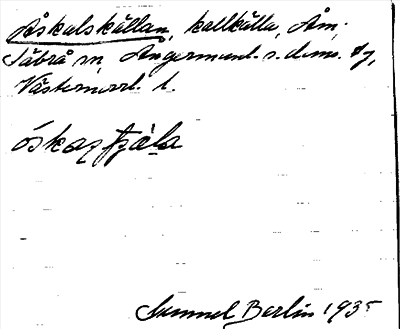 Åskalskällan, kallkälla, Åm,
Säbrå sn, Ångermanl. s. doms. dy,
Västernorrl. l.
óskaʒ
Samuel Berlin 1935